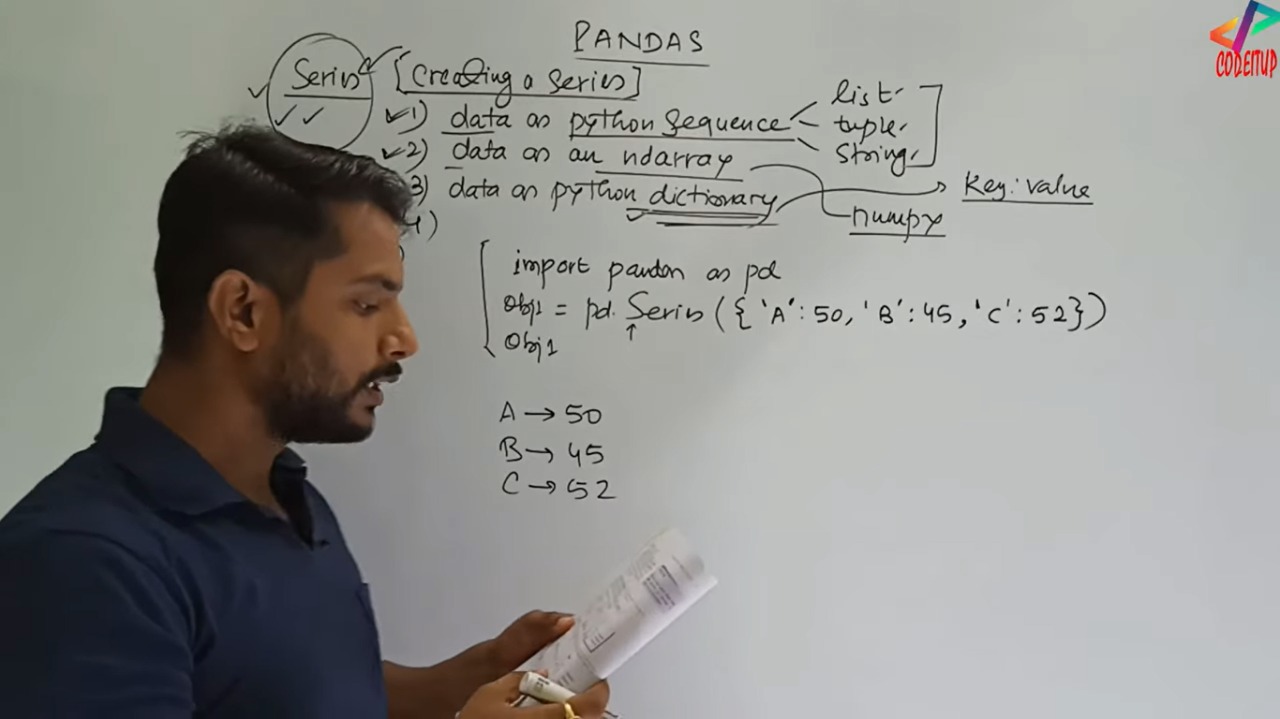 PANDAS
CODEITUP
Series [Creating a Series]
1) data as python sequence
list
tuple
string
2) data as an ndarray
3) data as python dictionary
Key:value
numpy
4)
import pandas as pd
Obj1 = pd. Series ({'A':50,'B':45,'C':52})
Obj1
A → 50
B → 45
C → 52